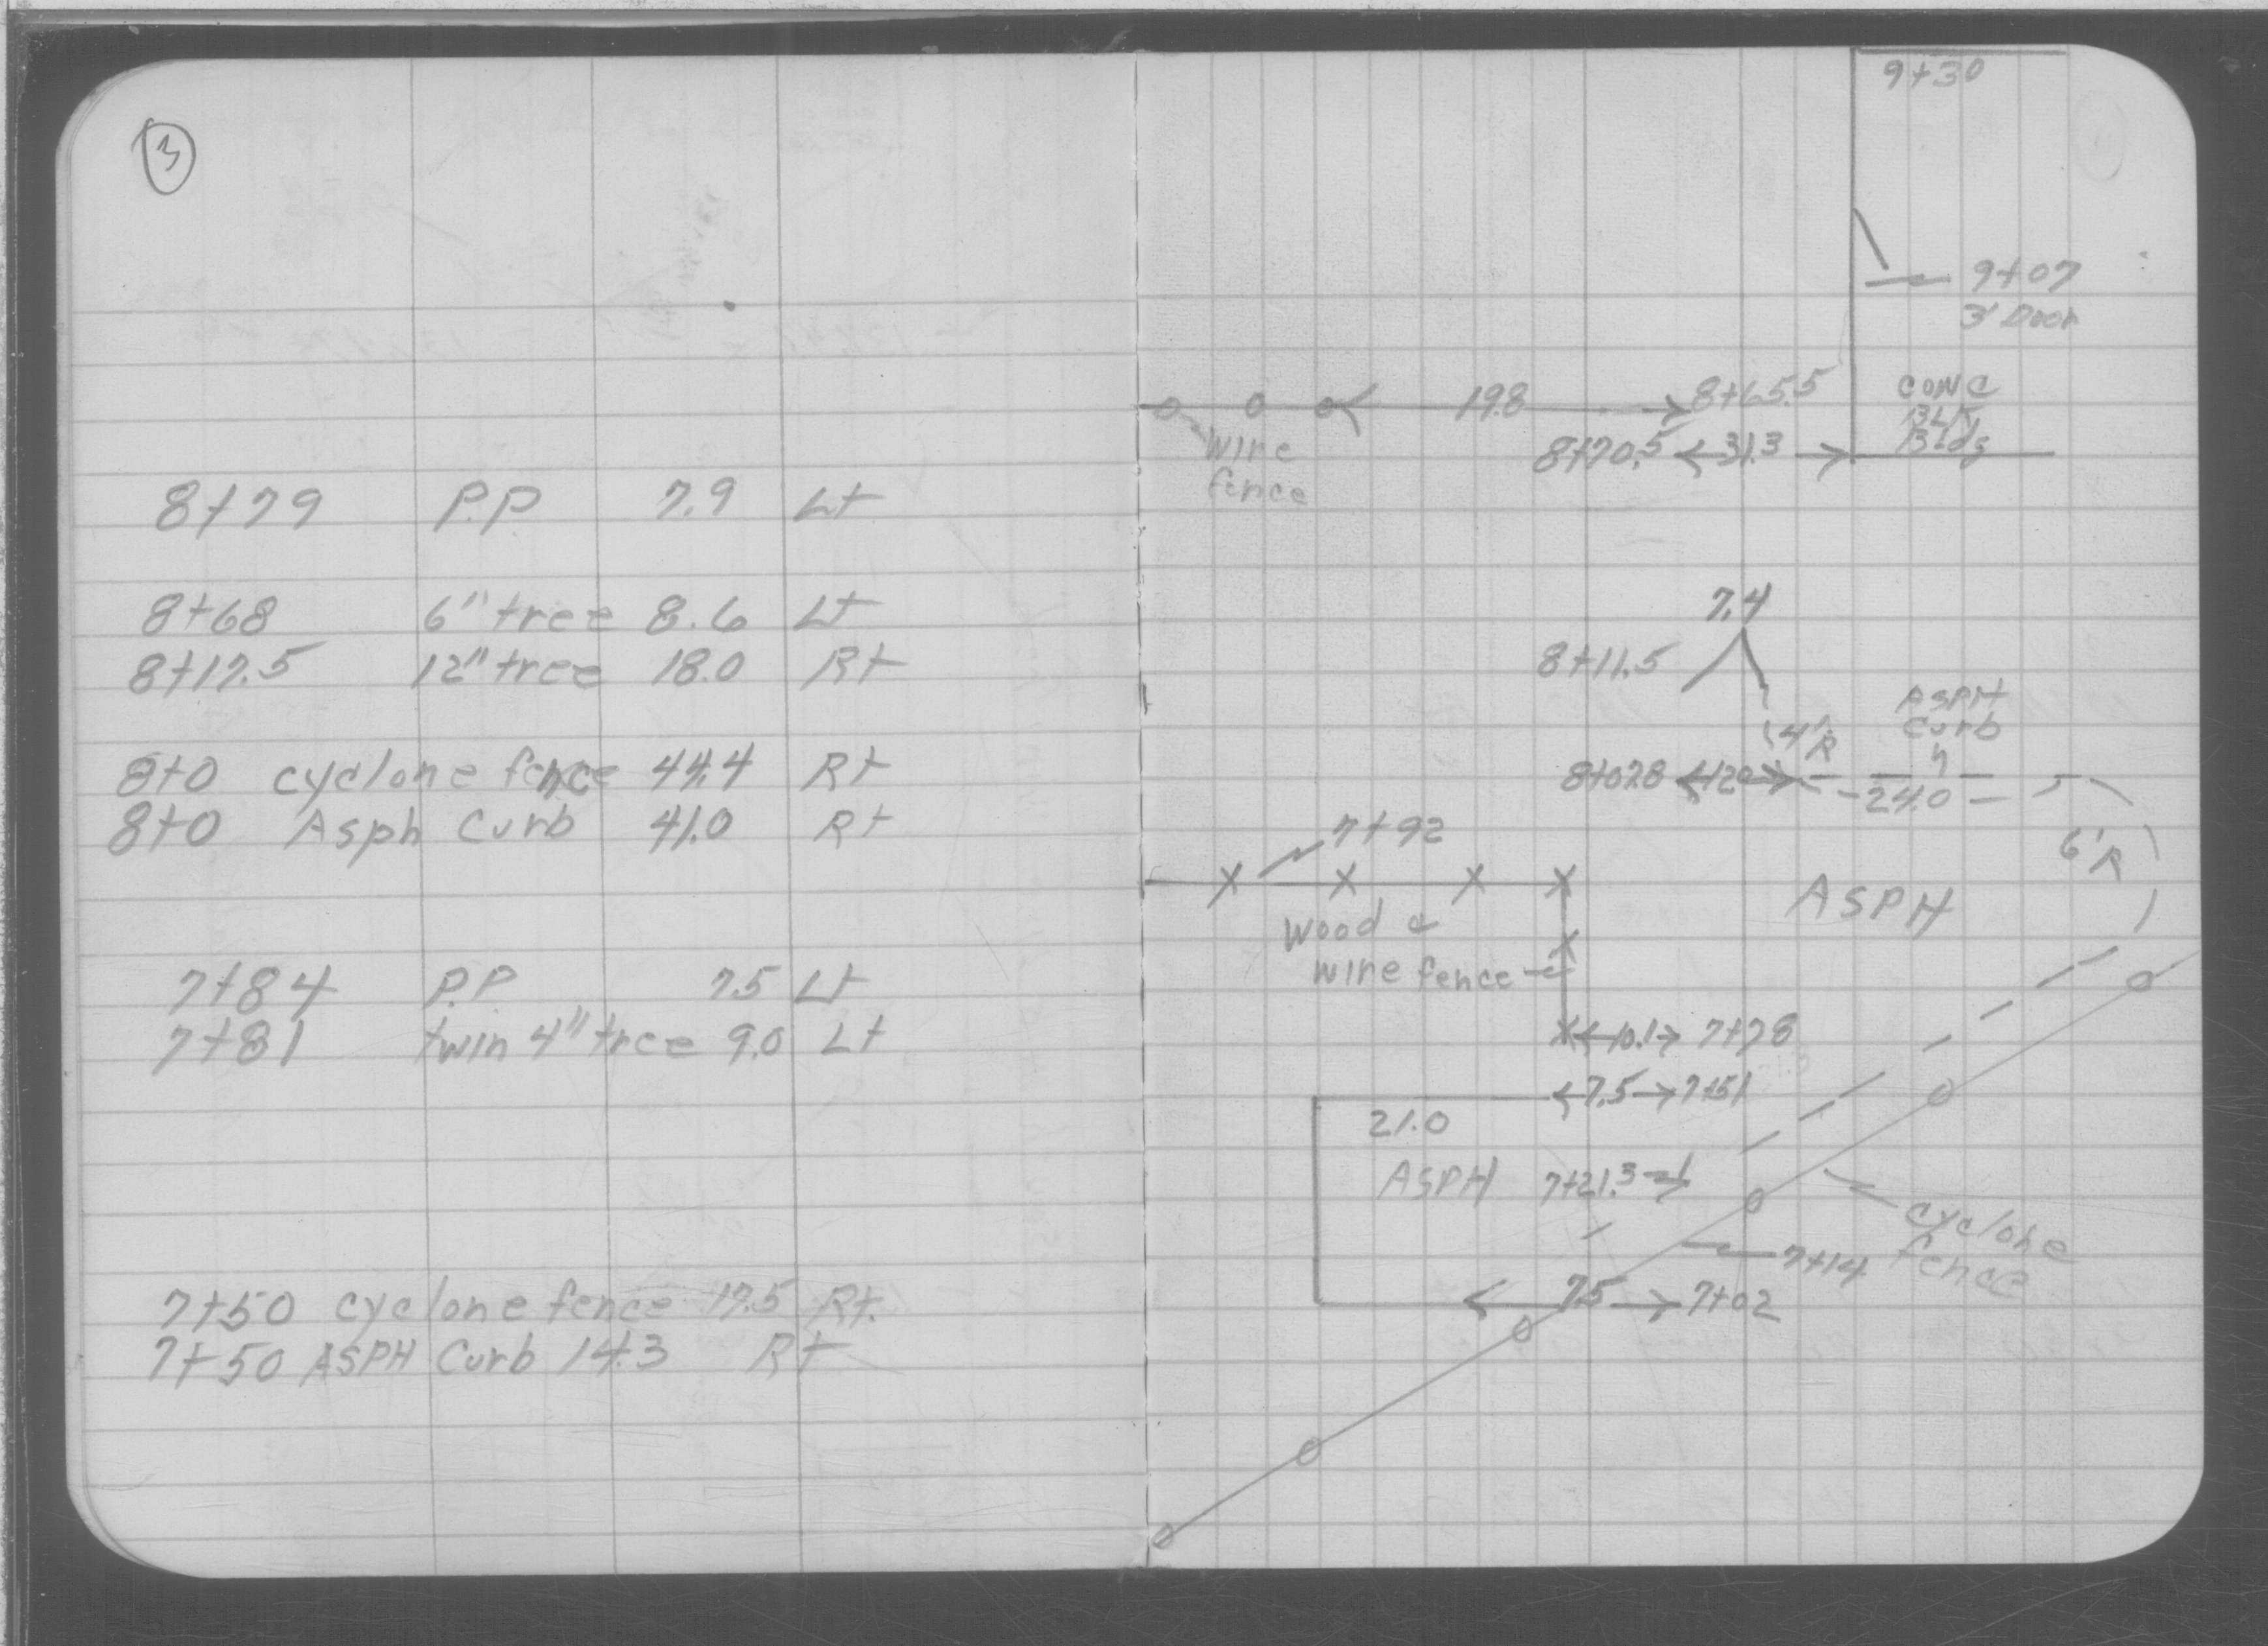 3
8+79 P.P 7.9 Lt
8+68 6" tree 8.6 Lt
8+17.5 12" tree 18.0 Rt
8+0 cyclone fence 44.4 Rt
8+0 Asph Curb 41.0 Rt
7+84 P.P 7.5 Lt
7+81 twin 4" tree 9.0 Lt
7+50 cyclone fence 17.5 Rt.
7+50 ASPH Curb 14.3 Rt
9+30
9+07
3' Door
19.8 8+65.5
CONC
BLK
Bldg
wire
fence
8+70.5 31.3
7.4
8+11.5
ASPH
Curb
4'R
8+07.8 12.0
24.0
7+92
6'R
ASPH
Wood &
wire fence
10.1 7+78
7.5 7+51
21.0
ASPH 7+21.3
cyclone
fence
7+14
7.5 7+02